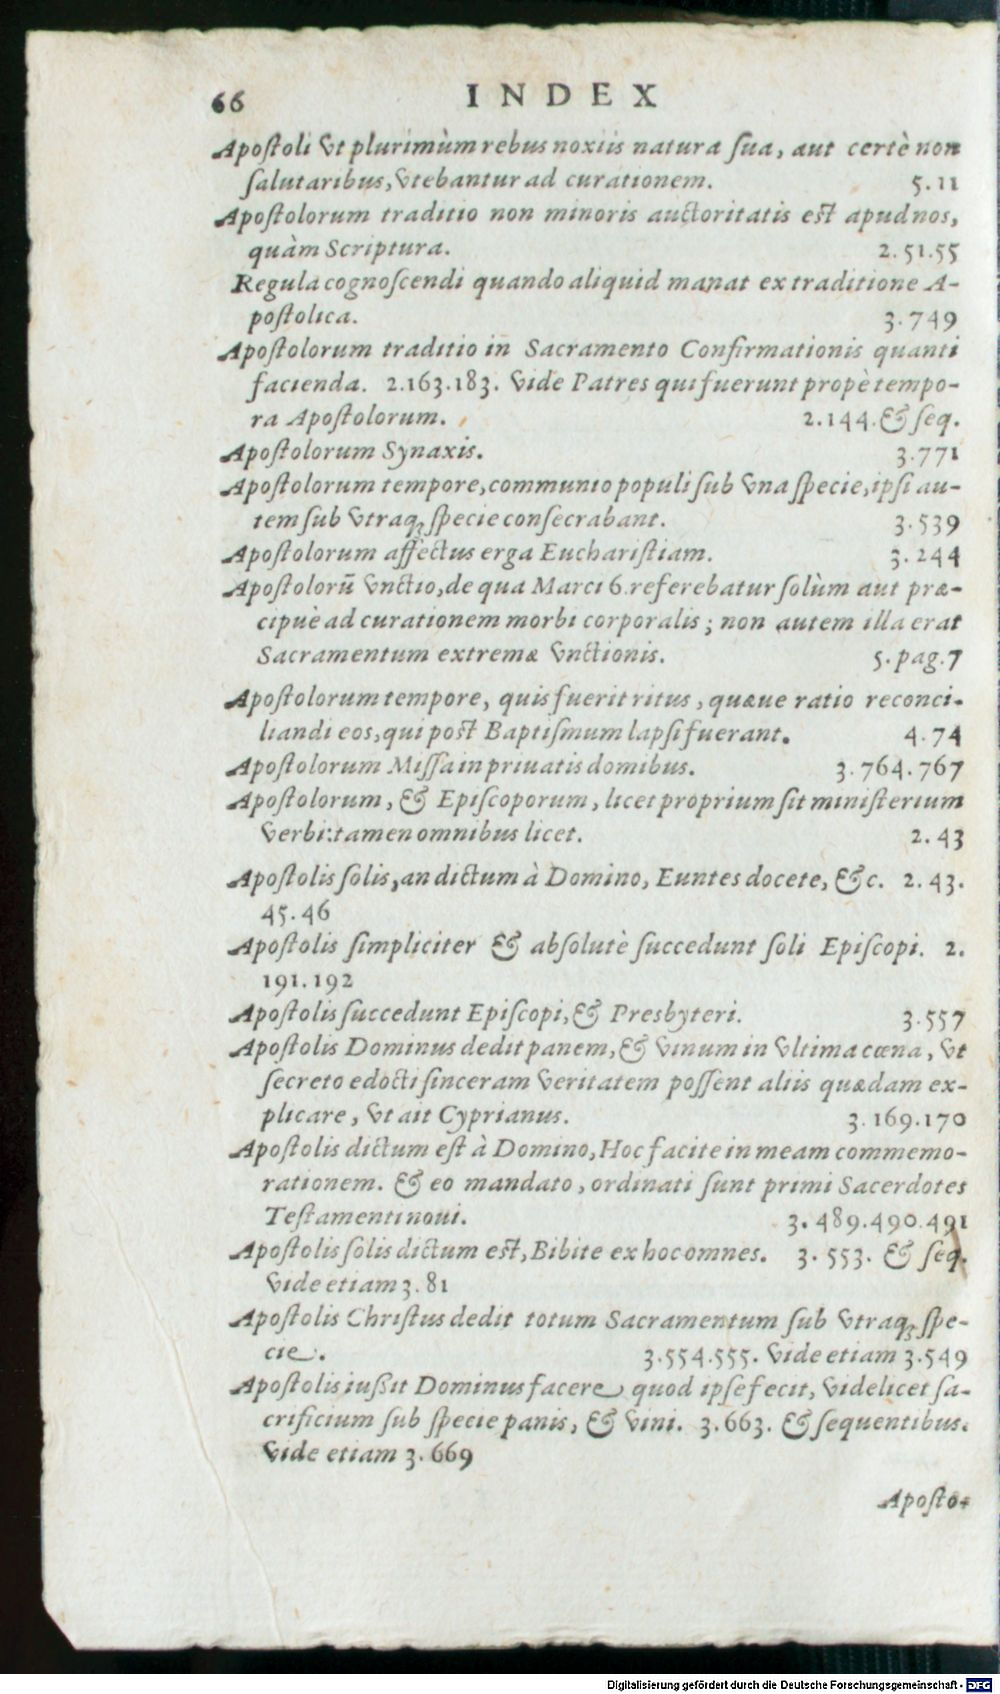 66 INDEX
Apoſtoli vt plurimùm rebus noxiis natura ſua, aut certè non
ſalutaribus, vtebantur ad curationem. 5.11
Apoſtolorum traditio non minoris auctoritatis eſt apud nos,
quàm Scriptura. 2.51.55
Regula cognoſcendi quando aliquid manat ex traditione A-
poſtolica. 3.749
Apoſtolorum traditio in Sacramento Confirmationis quanti
facienda. 2.163.183. vide Patres qui fuerunt propè tempo-
ra Apoſtolorum. 2.144. & ſeq.
Apoſtolorum Synaxis. 3.771
Apoſtolorum tempore, communio populi ſub vna ſpecie, ipſi au-
tem ſub vtraqꝫ ſpecie conſecrabant. 3.539
Apoſtolorum affectus erga Euchariſtiam. 3.244
Apoſtolorũ vnctio, de qua Marci 6. referebatur ſolùm aut præ-
cipuè ad curationem morbi corporalis; non autem illa erat
Sacramentum extremæ vnctionis. 5. pag. 7
Apoſtolorum tempore, quis fuerit ritus, quæue ratio reconci-
liandi eos, qui poſt Baptiſmum lapſi fuerant. 4.74
Apoſtolorum Miſſa in priuatis domibus. 3.764.767
Apoſtolorum, & Epiſcoporum, licet proprium ſit miniſterium
verbi: tamen omnibus licet. 2.43
Apoſtolis ſolis, an dictum à Domino, Euntes docete, &c. 2.43.
45.46
Apoſtolis ſimpliciter & abſolutè ſuccedunt ſoli Epiſcopi. 2.
191.192
Apoſtolis ſuccedunt Epiſcopi, & Presbyteri. 3.557
Apoſtolis Dominus dedit panem, & vinum in vltima cœna, vt
ſecreto edocti ſinceram veritatem poſſent aliis quædam ex-
plicare, vt ait Cyprianus. 3.169.170
Apoſtolis dictum eſt à Domino, Hoc facite in meam commemo-
rationem. & eo mandato, ordinati ſunt primi Sacerdotes
Teſtamenti noui. 3.489.490.491
Apoſtolis ſolis dictum eſt, Bibite ex hoc omnes. 3.553. & ſeq.
vide etiam 3.81
Apoſtolis Chriſtus dedit totum Sacramentum ſub vtraqꝫ ſpe-
cie. 3.554.555. vide etiam 3.549
Apoſtolis iußit Dominus facere quod ipſe fecit, videlicet ſa-
crificium ſub ſpecie panis, & vini. 3.663. & ſequentibus.
vide etiam 3.669
Apoſto-
Digitalisierung gefördert durch die Deutsche Forschungsgemeinschaft - DFG